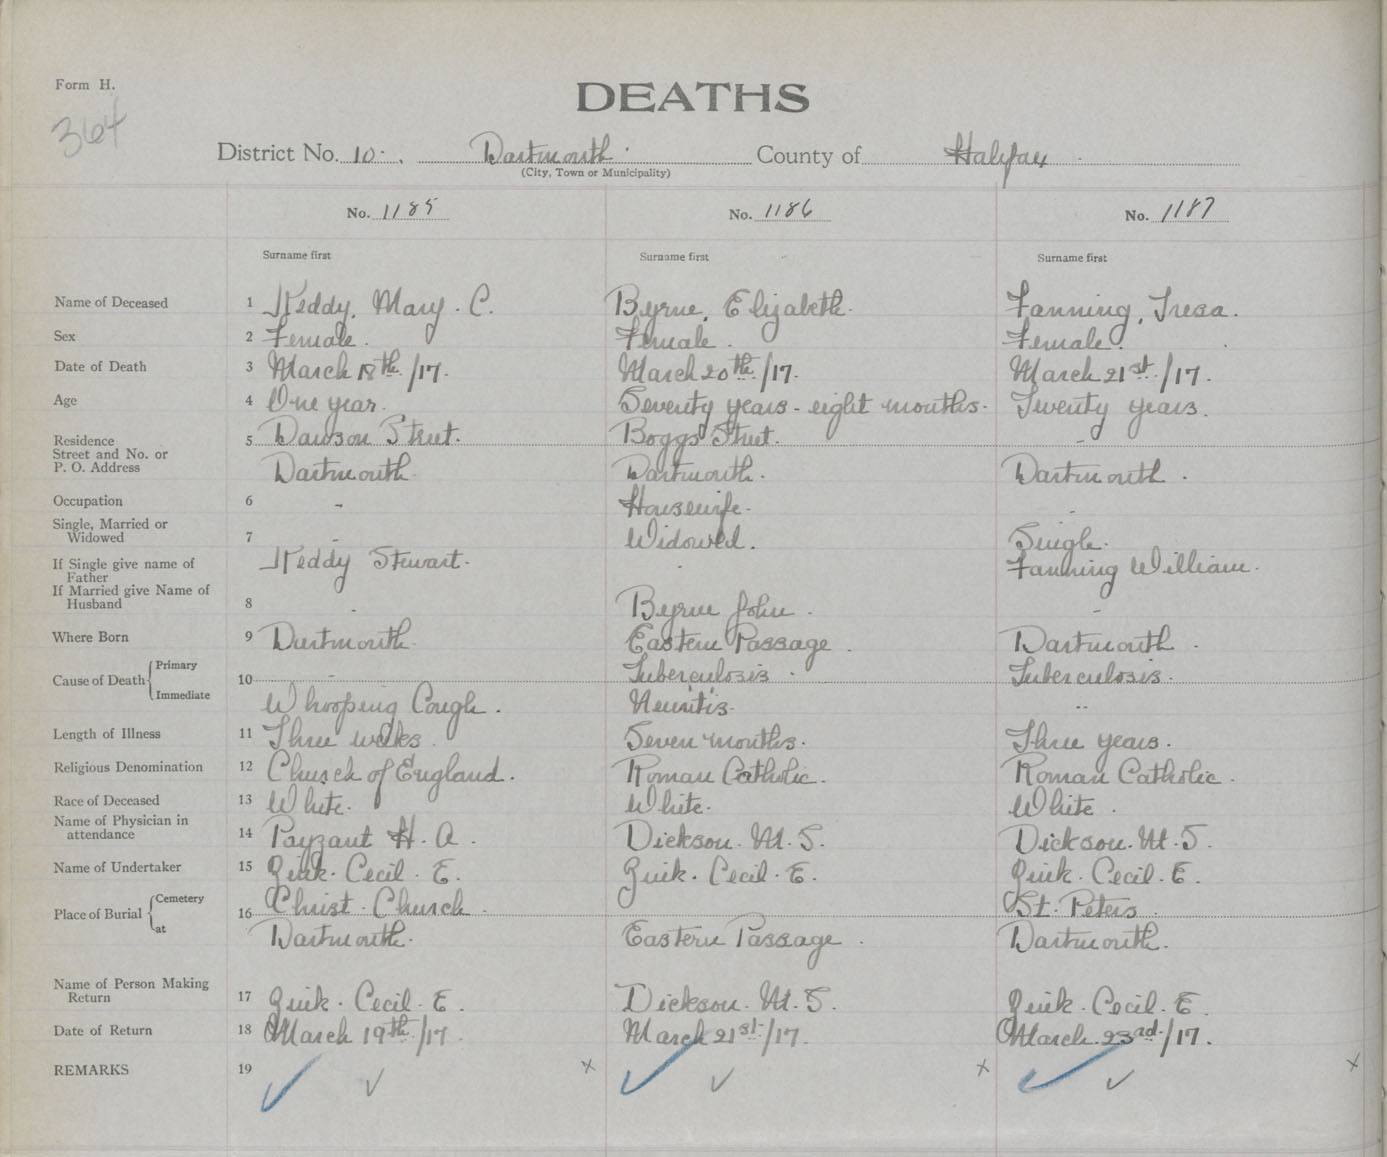 Form H.
364
DEATHS
District No. 10. Dartmouth. County of Halifax
(City, Town or Municipality)
No. 1185 No. 1186 No. 1187
Surname first Surname first Surname first
Name of Deceased 1 Keddy, Mary. C. Byrne, Elizabeth. Fanning, Tresa.
Sex 2 Female. Female. Female.
Date of Death 3 March 18th/17. March 20th/17. March 21st/17.
Age 4 One year. Seventy years - eight months. Twenty years.
Residence Street and No. or P. O. Address 5 Dawson Street. Boggs Street. -
Dartmouth Dartmouth. Dartmouth.
Occupation 6 - Housewife. -
Single, Married or Widowed 7 - Widowed. Single.
If Single give name of Father Keddy Stewart. - Fanning William.
If Married give Name of Husband 8 - Byrne John. -
Where Born 9 Dartmouth. Eastern Passage. Dartmouth.
Cause of Death Primary 10 - Tuberculosis. Tuberculosis.
Immediate Whooping Cough. Neuritis. --
Length of Illness 11 Three weeks. Seven months. Three years.
Religious Denomination 12 Church of England. Roman Catholic. Roman Catholic.
Race of Deceased 13 White. White. White.
Name of Physician in attendance 14 Payzant H. A. Dickson. M. S. Dickson. M. S.
Name of Undertaker 15 Zuik. Cecil. E. Zuik. Cecil. E. Zuik. Cecil. E.
Place of Burial Cemetery 16 Christ. Church. St. Peters.
at Dartmouth. Eastern Passage. Dartmouth.
Name of Person Making Return 17 Zuik. Cecil. E. Dickson. M. S. Zuik. Cecil. E.
Date of Return 18 March 19th/17. March 21st/17. March. 23rd/17.
REMARKS 19 ✓ ✓ x ✓ ✓ x ✓ ✓ x